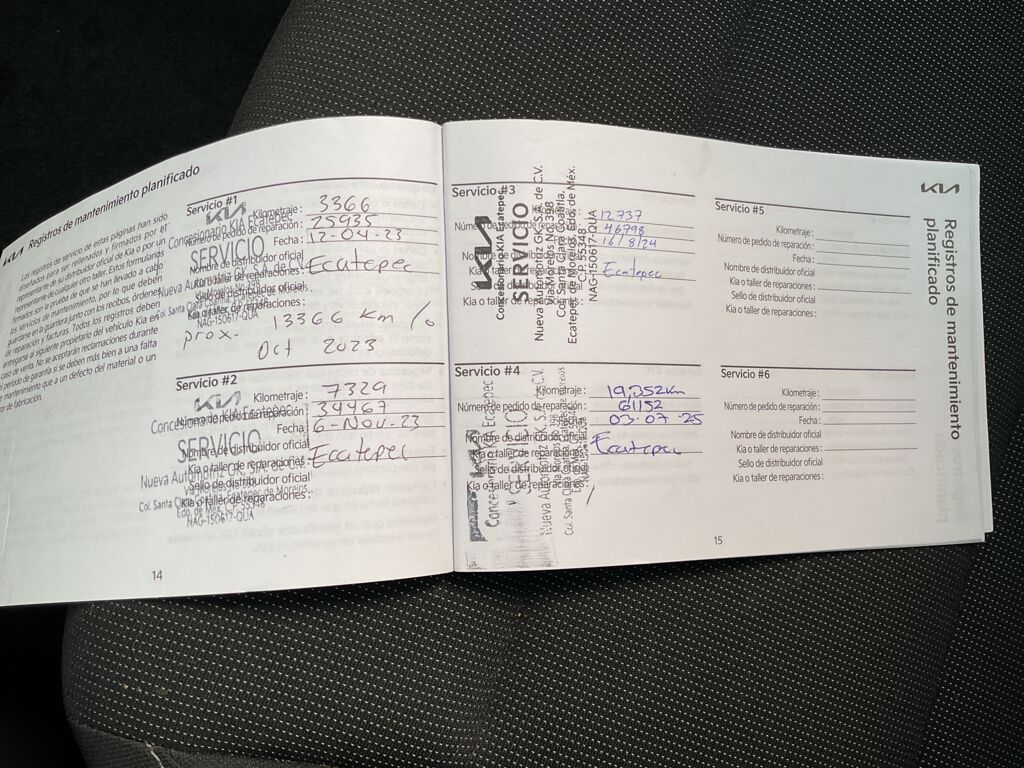 KIA Registros de mantenimiento planificado
Los registros de servicio de estas páginas han sido
diseñados para ser rellenados y firmados por el
distribuidor oficial de Kia o por un
representante de cualquier otro taller. Estos formularios
firmados son la prueba de que se han llevado a cabo
los servicios de mantenimiento, por lo que deben
guardarse en la guantera junto con los recibos, órdenes
de reparación y facturas. Todos los registros deben
entregarse al siguiente propietario del vehículo Kia en
caso de venta. No se aceptarán reclamaciones durante
el periodo de garantía si se deben más bien a una falta
de mantenimiento que a un defecto del material o un
de fabricación.
Servicio #1
Kilometraje: 3366
Número de pedido de reparación: 25935
Fecha: 12-04-23
Nombre de distribuidor oficial
Kia o taller de reparaciones: Ecatepec
Sello de distribuidor oficial
Kia o taller de reparaciones:
KIA
Concesionario KIA Ecatepec
SERVICIO
NAG-150617-QUA
prox. 13366 Km / o
Oct 2023
Servicio #2
Kilometraje: 7329
Número de pedido de reparación: 34467
Fecha: 6-Nov-23
Nombre de distribuidor oficial
Kia o taller de reparaciones: Ecatepec
Sello de distribuidor oficial
Kia o taller de reparaciones:
KIA
Concesionario KIA Ecatepec
SERVICIO
Edo. de Méx. C.P. 55348
NAG-150617-QUA
14
Servicio #3
12737
46798
16/8/24
Ecatepec
Kia o taller de reparaciones:
KIA
Concesionario KIA Ecatepec
SERVICIO
Nueva Automotriz GK, S.A. de C.V.
Vía Morelos No. 398
Col. Santa Clara Coatitla,
Ecatepec de Morelos, Edo. de Méx.
C.P. 55348
NAG-150617-QUA
Servicio #4
Kilometraje: 19,352km
Número de pedido de reparación: 61152
Fecha: 03-07-25
Nombre de distribuidor oficial
Kia o taller de reparaciones: Ecatepec
Sello de distribuidor oficial
Kia o taller de reparaciones:
15
KIA
Registros de mantenimiento
planificado
Servicio #5
Kilometraje:
Número de pedido de reparación:
Fecha:
Nombre de distribuidor oficial
Kia o taller de reparaciones:
Sello de distribuidor oficial
Kia o taller de reparaciones:
Servicio #6
Kilometraje:
Número de pedido de reparación:
Fecha:
Nombre de distribuidor oficial
Kia o taller de reparaciones:
Sello de distribuidor oficial
Kia o taller de reparaciones: